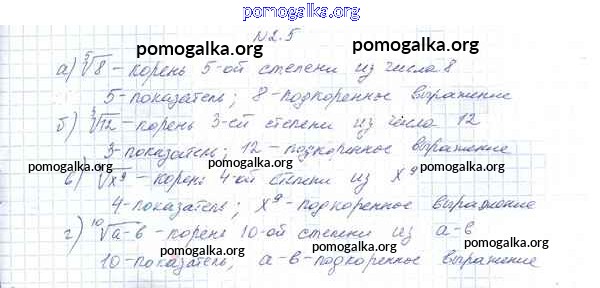 pomogalka.org
N 2.5
pomogalka.org pomogalka.org
а) ⁵√8 - корень 5-ой степени из числа 8
5-показатель; 8-подкоренное выражение
pomogalka.org
б) ³√12 - корень 3-ей степени из числа 12
3-показатель; 12-подкоренное выражение
pomogalka.org pomogalka.org pomogalka.org
в) ⁴√x⁹ - корень 4-ой степени из x⁹
4-показатель; x⁹-подкоренное выражение
pomogalka.org
г) ¹⁰√a-b - корень 10-ой степени из a-b
pomogalka.org pomogalka.org
10-показатель, a-b-подкоренное выражение
pomogalka.org